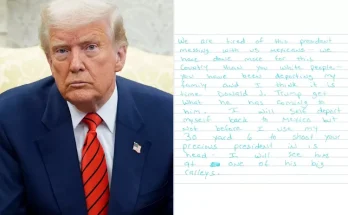 We are tired of this president
messing with us Mexicans - we
have done more for this
country than you white people -
you have been deporting my
family and I think it is
time Donald J. Trump get
what he has coming to
him. I will self deport
myself back to Mexico but
not before I use my
30 yard 6 to shoot your
precious president in is
head - I will see him
at one of his big
ralleys.